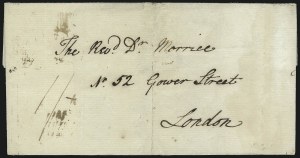 The Revd. Dr. Morrice
No. 52 Gower Street
London